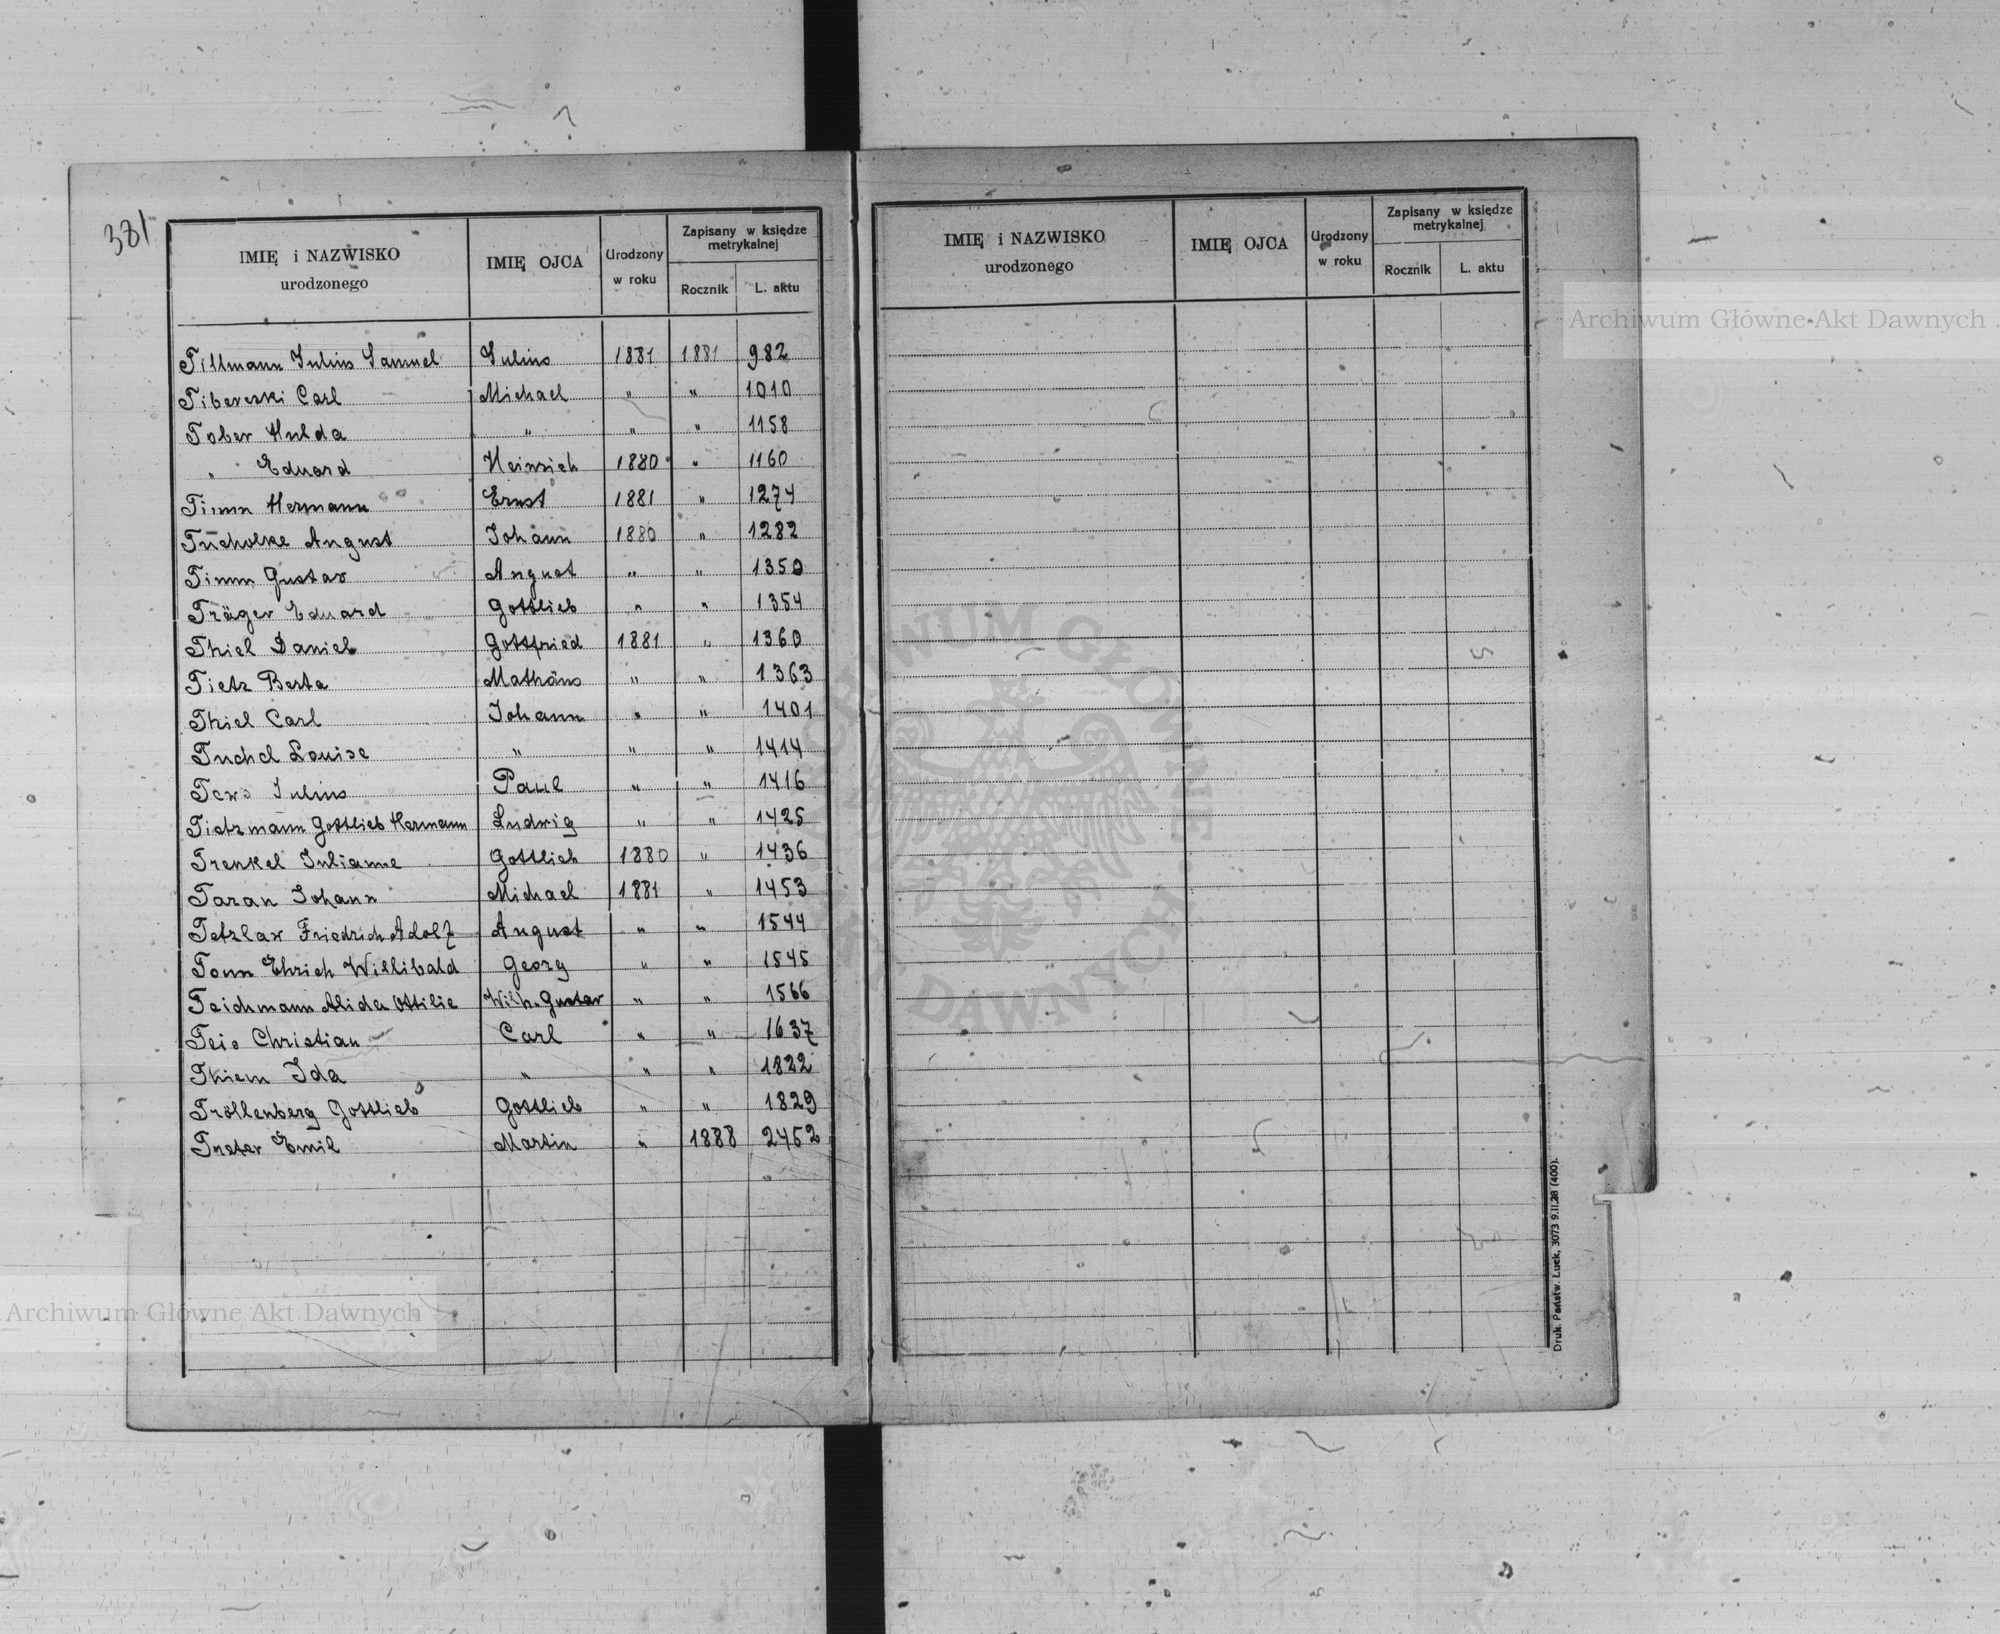 381
IMIĘ i NAZWISKO urodzonego IMIĘ OJCA Urodzony w roku Zapisany w księdze metrykalnej Rocznik L. aktu
Tillmann Julius Samuel Julius 1881 1881 982
Tibereski Carl Michael " " 1010
Tober Hulda " " " 1158
" Eduard Heinrich 1880 " 1160
Timm Hermann Ernst 1881 " 1274
Tucholke August Johann 1880 " 1282
Timm Gustav August " " 1350
Träger Eduard Gottlieb " " 1354
Thiel Daniel Gottfried 1881 " 1360
Tietz Berta Mathäus " " 1363
Thiel Carl Johann " " 1401
Tuchel Louise " " " 1414
Tews Julius Paul " " 1416
Tietzmann Gottlieb Hermann Ludwig " " 1425
Trenkel Julianne Gottlieb 1880 " 1436
Taran Johann Michael 1881 " 1453
Tetzlaw Friedrich Adolf August " " 1544
Tonn Ehrich Willibald Georg " " 1545
Teichmann Alida Ottilie Wilh. Gustav " " 1566
Teis Christian Carl " " 1637
Thiem Ida " " " 1822
Tröllenberg Gottlieb Gottlieb " " 1829
Treter Emil Martin " 1888 2452
IMIĘ i NAZWISKO urodzonego IMIĘ OJCA Urodzony w roku Zapisany w księdze metrykalnej Rocznik L. aktu
Druk. Państw. Łuck, 3073 9.II.28 (400).
Archiwum Główne Akt Dawnych
Archiwum Główne Akt Dawnych
ARCHIWUM GŁÓWNE AKT DAWNYCH